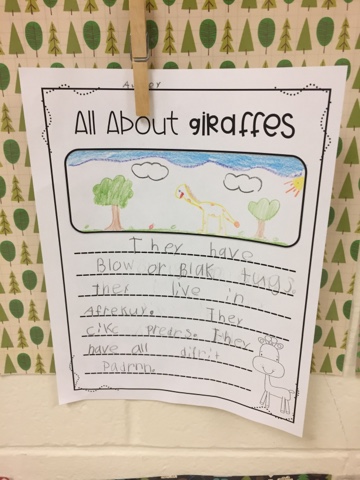 All About giraffes
They have
Blow or Blak tugs
Thef live in
Afrekuy. They
cikc predrs. They
have all difrit
padrnn.